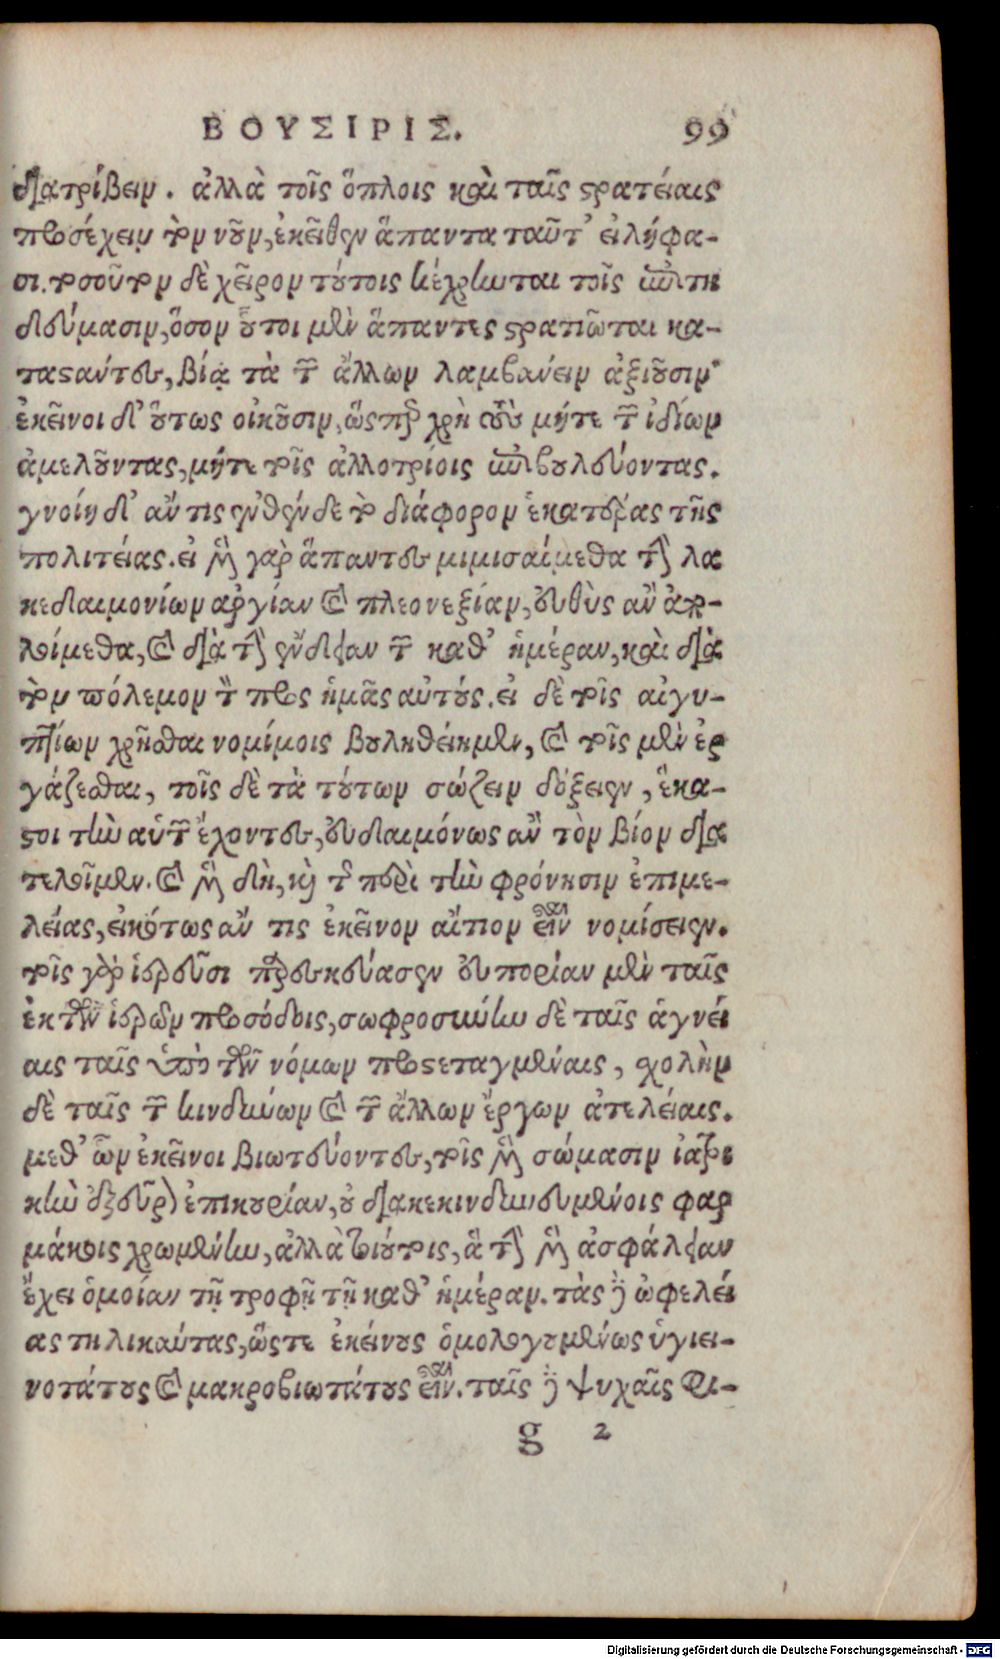 ΒΟΥΣΙΡΙΣ. 99
διατρίβειν. ἀλλὰ τοῖς ὅπλοις καὶ ταῖς στρατείαις
προσέχειν τὸν νοῦν, ἐκεῖθεν ἅπαντα ταῦτ' εἰλήφα-
σι. τοσοῦτον δὲ χεῖρον τούτοις κέχρωνται τοῖς ἐπιτη
δεύμασιν, ὅσον οὗτοι μὲν ἅπαντες στρατιῶται κα-
ταστάντες, βίᾳ τὰ τῶν ἄλλων λαμβάνειν ἀξιοῦσιν·
ἐκεῖνοι δ' οὕτως οἰκοῦσιν, ὥσπερ χρὴ τοὺς μήτε τῶν ἰδίων
ἀμελοῦντας, μήτε τοῖς ἀλλοτρίοις ἐπιβουλεύοντας.
γνοίη δ' ἄν τις ἐνθένδε τὸ διάφορον ἑκατέρας τῆς
πολιτείας. εἰ μὲν γὰρ ἅπαντες μιμισαίμεθα τὴν λα
κεδαιμονίων ἀργίαν καὶ πλεονεξίαν, εὐθὺς ἂν ἀπ-
λοίμεθα, καὶ διὰ τὴν ἔνδειαν τῶν καθ' ἡμέραν, καὶ διὰ
τὸν πόλεμον τὸν πρὸς ἡμᾶς αὐτούς. εἰ δὲ τοῖς αἰγυ-
πτίων χρῆσθαι νομίμοις βουληθείημεν, καὶ τοῖς μὲν ἐρ
γάζεσθαι, τοῖς δὲ τὰ τούτων σώζειν δόξειεν, ἕκα-
στοι τὴν αὑτῶν ἔχοντες, εὐδαιμόνως ἂν τὸν βίον δια
τελοῖμεν. καὶ μὲν δὴ, καὶ τῆς περὶ τὴν φρόνησιν ἐπιμε-
λείας, εἰκότως ἄν τις ἐκεῖνον αἴτιον εἶναι νομίσειεν.
τοῖς γὰρ ἱερεῦσι παρεσκεύασεν εὐπορίαν μὲν ταῖς
ἐκ τῶν ἱερῶν προσόδοις, σωφροσύνην δὲ ταῖς ἁγνεί
αις ταῖς ὑπὸ τῶν νόμων προστεταγμέναις, σχολὴν
δὲ ταῖς τῶν κινδύνων καὶ τῶν ἄλλων ἔργων ἀτελείαις.
μεθ' ὧν ἐκεῖνοι βιωτεύοντες, τοῖς μὲν σώμασιν ἰατρι
κὴν ἐξεῦρον ἐπικουρίαν, οὐ διακεκινδυνευμένοις φαρ
μάκοις χρωμένην, ἀλλὰ τοιούτοις, ἃ τὴν μὲν ἀσφάλειαν
ἔχει ὁμοίαν τῇ τροφῇ τῇ καθ' ἡμέραν. τὰς δὲ ὠφελεί
ας τηλικαύτας, ὥστε ἐκείνους ὁμολογουμένως ὑγιει-
νοτάτους καὶ μακροβιωτάτους εἶναι. ταῖς δὲ ψυχαῖς φι-
g 2
Digitalisierung gefördert durch die Deutsche Forschungsgemeinschaft - DFG